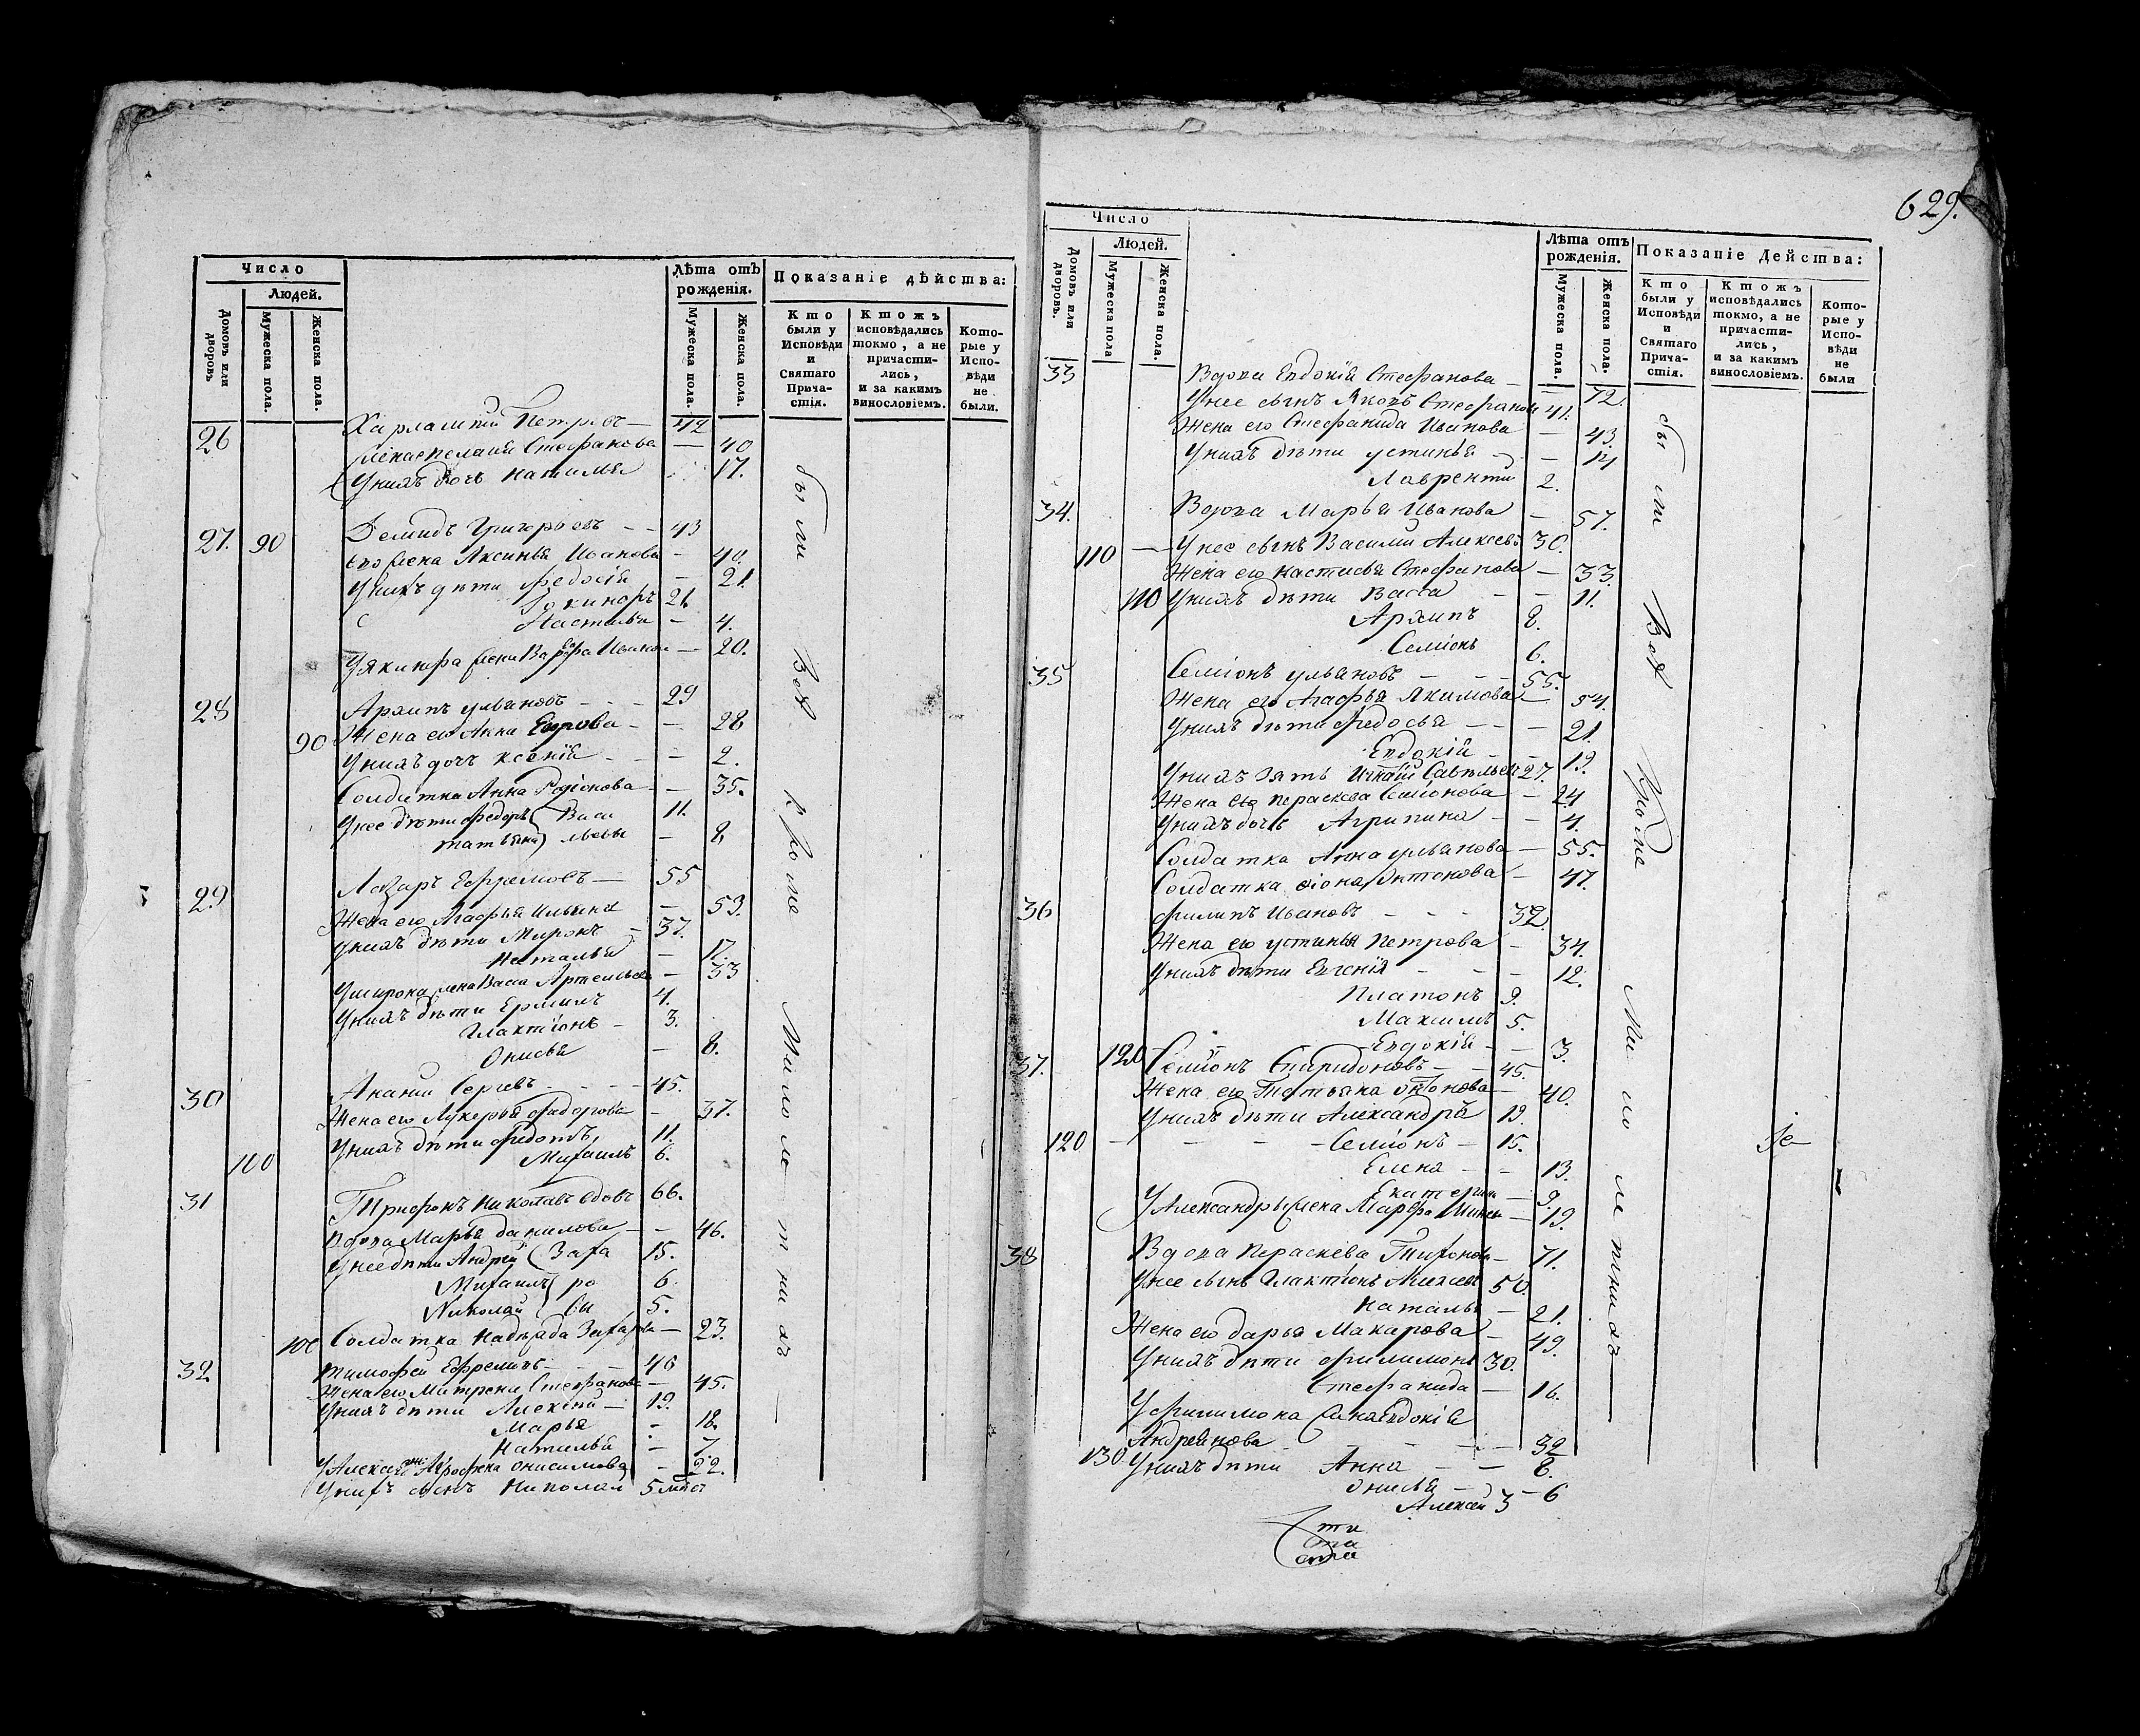 Число
Людей.
Домовъ или дворовъ
Мужеска пола.
Женска пола.
Лѣта отъ рожденія.
Мужеска пола.
Женска пола.
Показаніе дѣйства:
Кто были у Исповѣди и Святаго Прича-стія.
Ктожъ исповѣдались токмо, а не причасти-лись, и за какимъ винословіемъ.
Кото-рые у Испо-вѣди не были.
26 Петровъ — 42
Стефанова — 40
Унихъ дочь Наталья — 17.
27. 90 Демидъ Григорьевъ — 43
Его жена Аксинья Иванова — 40.
Унихъ дѣти Федосія — 21
21
Настасья — 4.
жена Варвара — 20.
28 Архипъ Ульяновъ — 29
90 Жена его Анна Егорова — 28
Унихъ дочь Ксенія — 2.
Солдатка Анна Родіонова — 35.
Унее дѣти Федоръ Васи 11.
Татьяна льевы — 8
29 Лазарь Ефремовъ — 55
Жена его Агафья Ильина — 53.
Унихъ дѣти Миронъ — 37.
Наталья — 17.
Умирона жена Васса — 33
Унихъ дѣти Ермилъ 4.
Галактіонъ — 3.
Онисья — 8.
30 Ананій Сергевъ — 45.
Жена его Лукерья Федорова — 37.
Унихъ дѣти Федотъ 11.
100 Михаилъ 6.
31 Трифонъ Николаевъ вдовъ 66.
Вдова Марья Данилова — 46.
Унее дѣти Андрей Заха 15.
Михаилъ ро 6
Николай вы 5.
100 Солдатка Надежда Захарова — 23.
32 Тимофей Ефремовъ — 46
Жена его Матрена Стефанова — 45.
Унихъ дѣти Алексѣй — 19.
Марья — 18.
Наталья — 7.
Онисимова — 22.
Унихъ сынъ Николай 5 лѣтъ
были Всѣ Кроме Малолетнихъ
629.
Число
Людей.
Домовъ или дворовъ.
Мужеска пола
Женска пола.
Лѣта отъ рожденія.
Мужеска пола.
Женска пола.
Показаніе Действа:
Кто были у Исповѣди и Святаго Прича-стія.
Ктожъ исповѣдались токмо, а не причасти-лись, и за какимъ винословіемъ.
Кото-рые у Испо-вѣди не были
33 Вдова Евдокія Стефанова — 72.
Унее сынъ Яковъ Стефановъ 41.
Жена его Стефанида Иванова — 43.
Унихъ дѣти Устинья — 14
Лаврентій 2.
34. Вдова Марья Иванова — 57.
110 — Унее сынъ Василій Алексѣевъ 30.
Жена его Настасья Стефанова — 33.
110 Унихъ дѣти Васса — 11.
Архипъ 8.
Семіонъ 6.
35 Семіонъ Ульяновъ — 55.
Жена его Агафья Якимова — 54.
Унихъ дѣти Федосья — 21.
Евдокія — 19.
Унихъ зять Савельевъ 27.
Жена его Параскева Семіонова — 24
Унихъ дочь Агрипина — 4.
Солдатка Анна Ульянова — 55.
Солдатка Антонова — 47.
36 Филипъ Ивановъ — 32.
Жена его Устинья Петрова — 34.
Унихъ дѣти Евгенія — 12.
Платонъ 9.
Максимъ 5.
120 Евдокія — 3.
37. Семіонъ Спиридоновъ — 45.
Жена его Татьяна Антонова — 40.
Унихъ дѣти Александръ 19.
120 — Семіонъ — 15.
Елена — 13.
Екатерина — 9.
Уалександры жена Марфа — 19.
38 Вдова Параскева Тихонова — 71.
Унее сынъ Галактіонъ Алексеевъ 50.
Наталья — 21.
Жена его Дарья Макарова — 49.
Унихъ дѣти Филимонъ 30.
Стефанида — 16.
Уфилимона жена Евдокія
Андреянова — 32
130 Унихъ дѣти Анна — 8.
Онисья — 6
Алексей 3
были Всѣ Кроме Малолетнихъ